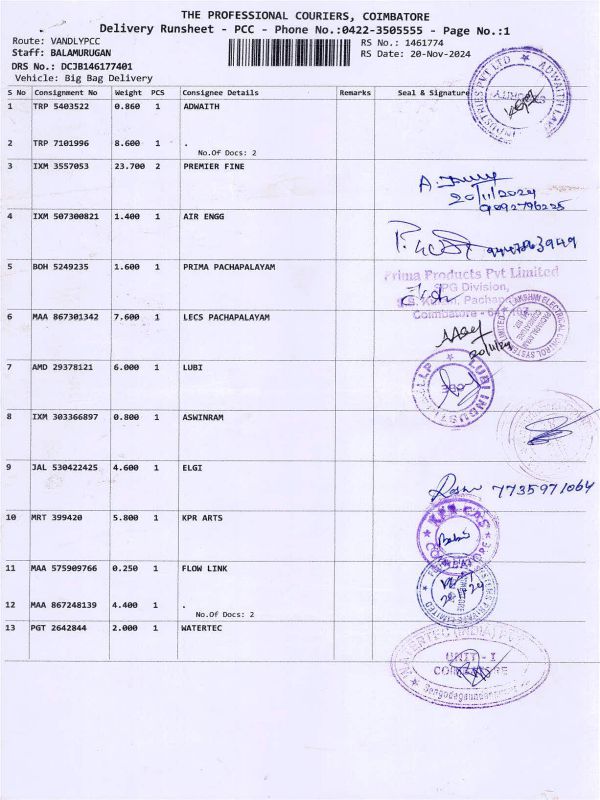 THE PROFESSIONAL COURIERS, COIMBATORE
Delivery Runsheet - PCC - Phone No.:0422-3505555 - Page No.:1
Route: VANDLYPCC RS No.: 1461774
Staff: BALAMURUGAN RS Date: 20-Nov-2024
DRS No.: DCJB146177401
Vehicle: Big Bag Delivery
S No Consignment No Weight PCS Consignee Details Remarks Seal & Signature
1 TRP 5403522 0.860 1 ADWAITH
2 TRP 7101996 8.600 1 .
No.Of Docs: 2
3 IXM 3557053 23.700 2 PREMIER FINE
20/11/2024
9092796225
4 IXM 507300821 1.400 1 AIR ENGG
5 BOH 5249235 1.600 1 PRIMA PACHAPALAYAM
Prima Products Pvt Limited
SPG Division,
Coimbatore
6 MAA 867301342 7.600 1 LECS PACHAPALAYAM
20/11/24
7 AMD 29378121 6.000 1 LUBI
LLP ★ LUBI INDUSTRI
8 IXM 303366897 0.800 1 ASWINRAM
9 JAL 530422425 4.600 1 ELGI
7735971064
10 MRT 399420 5.800 1 KPR ARTS
COIMBATORE
11 MAA 575909766 0.250 1 FLOW LINK
12 MAA 867248139 4.400 1 .
No.Of Docs: 2
13 PGT 2642844 2.000 1 WATERTEC
WATERTEC (INDIA) PVT
UNIT - I
COIMBATORE